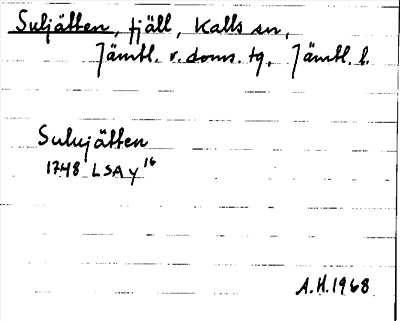 Suljätten, fjäll, Kalls sn,
Jämtl. v. doms. tg, Jämtl. l.
Sulujätten
1748 LSA y16
A.H. 1968